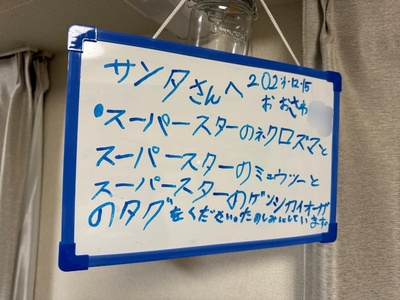 サンタさんへ 2021.12.15
おおさわ
•スーパースターのネクロズマと
スーパースターのミュウツーと
スーパースターのゲンシカイオーガ
のタグをください。たのしみにしています